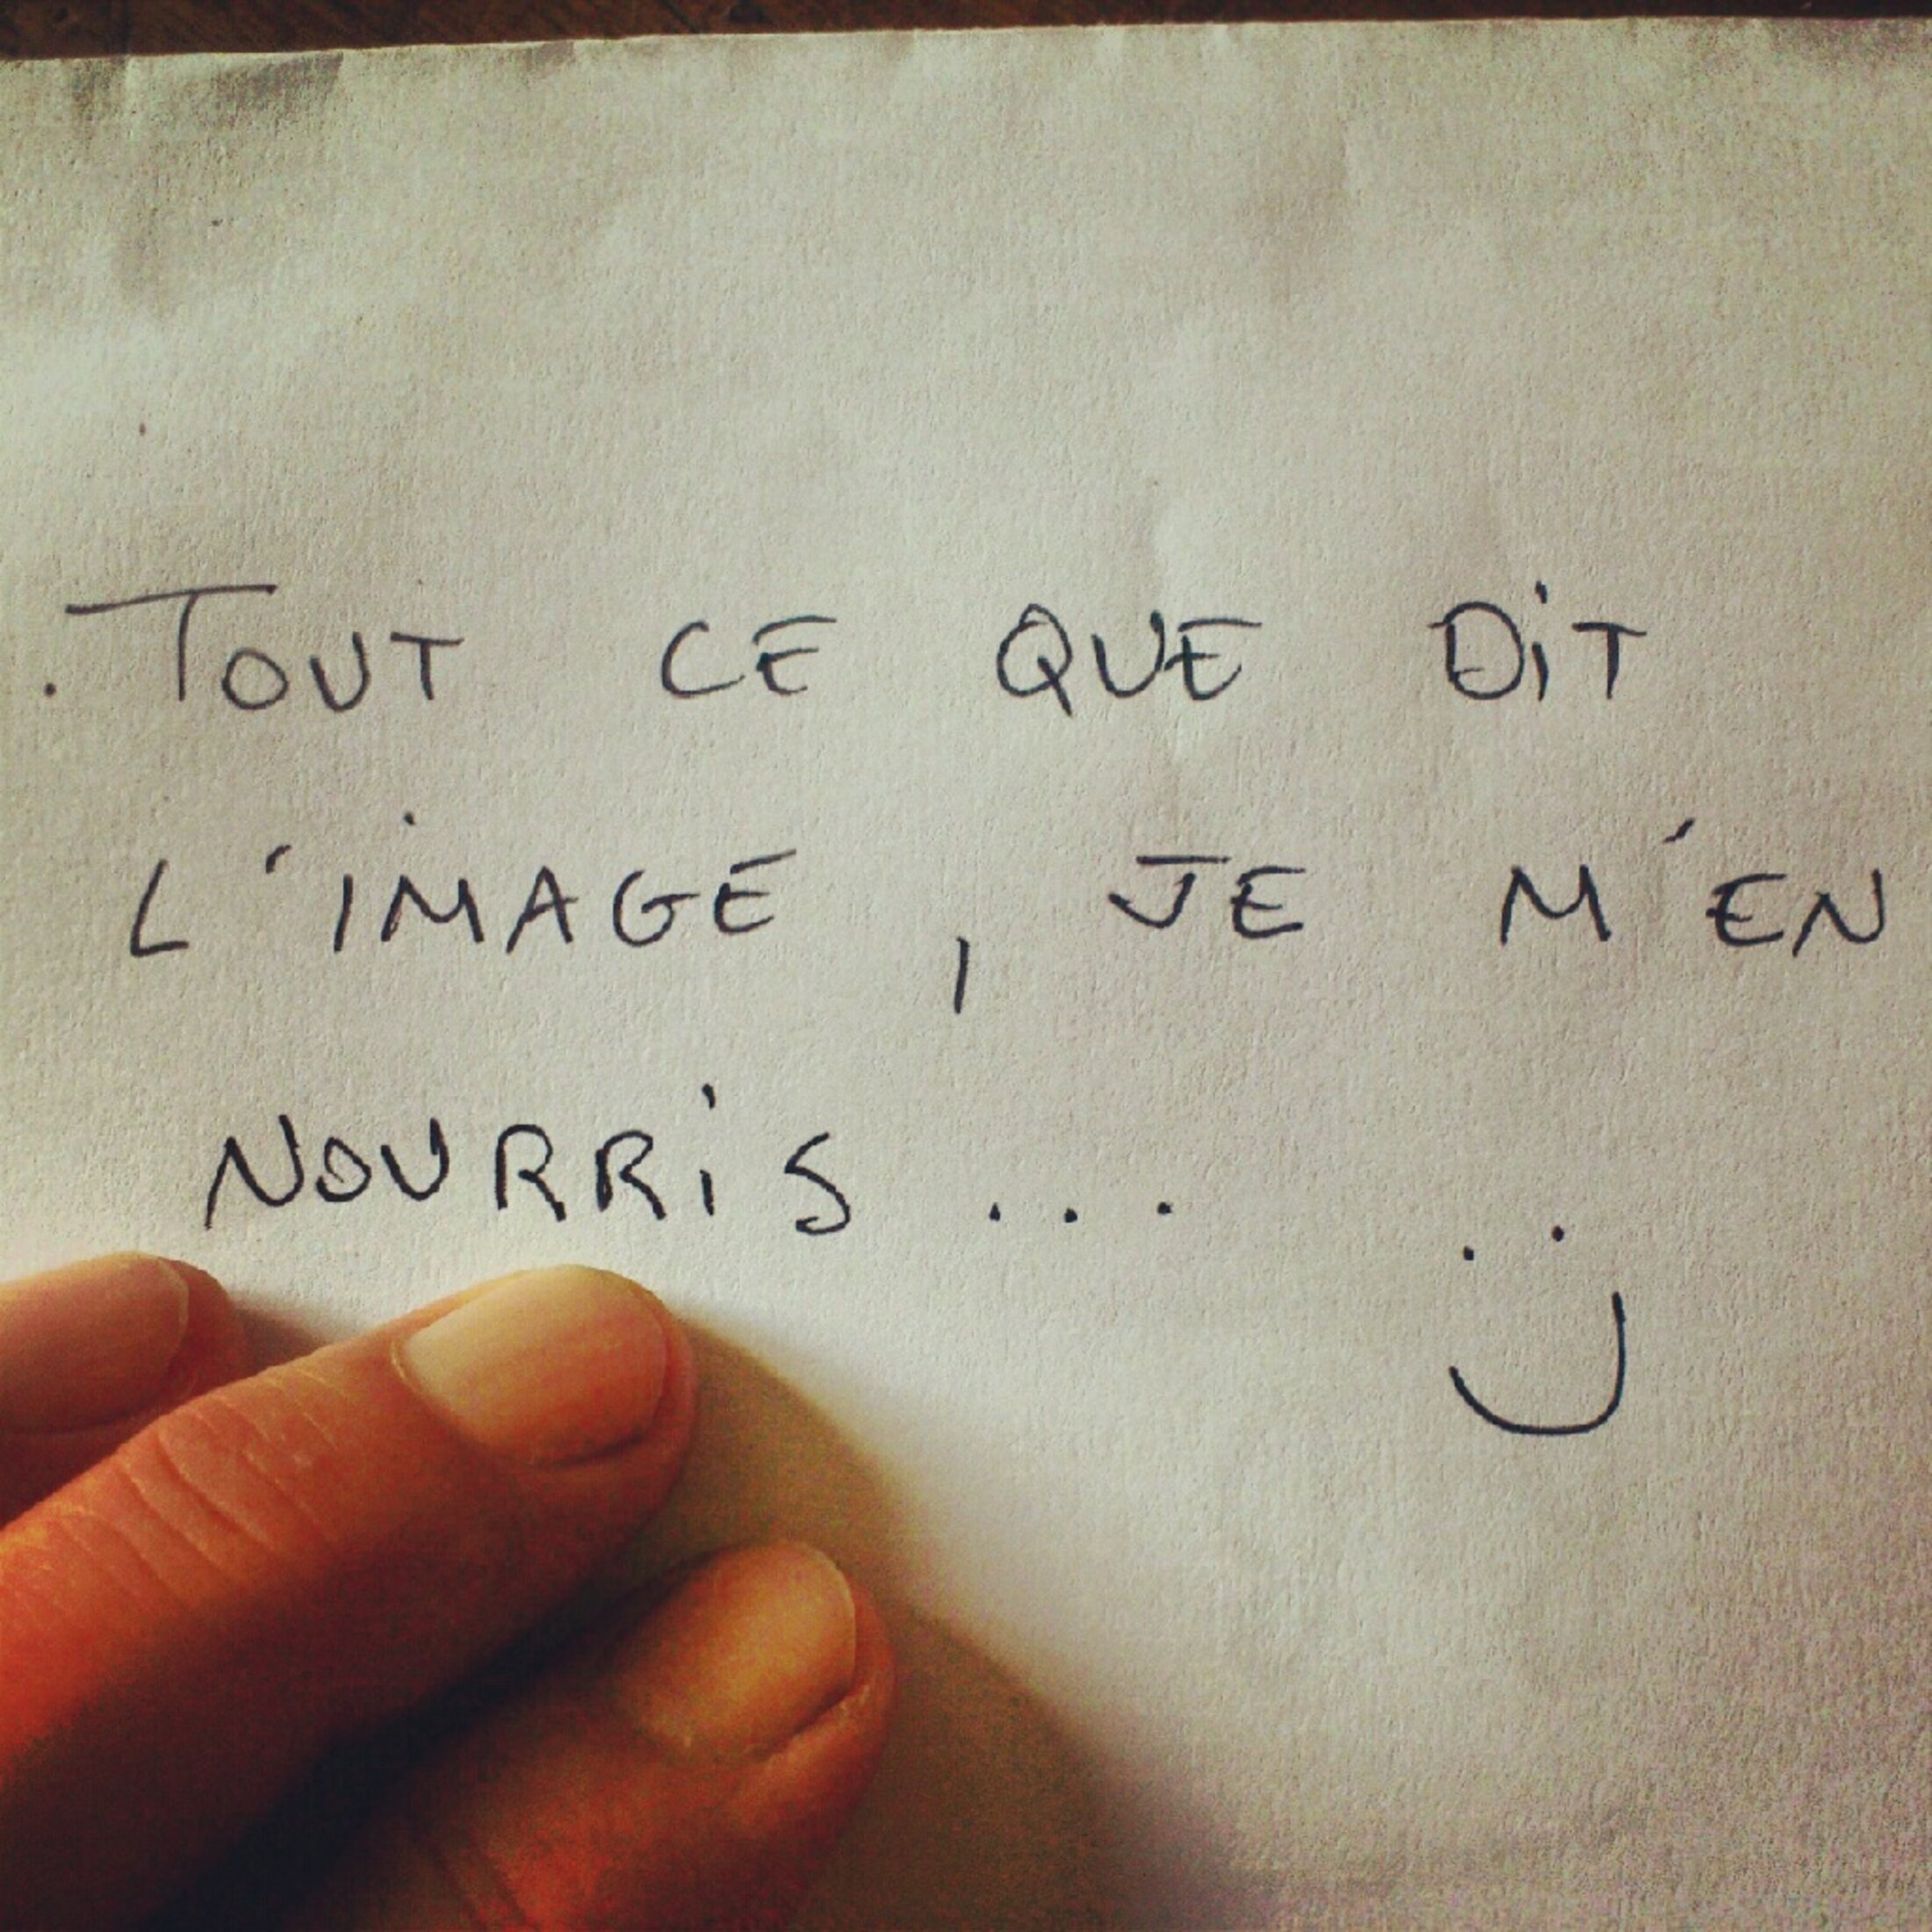 . TOUT CE QUE DiT
L'iMAGE , JE M'EN
NOURRiS ...